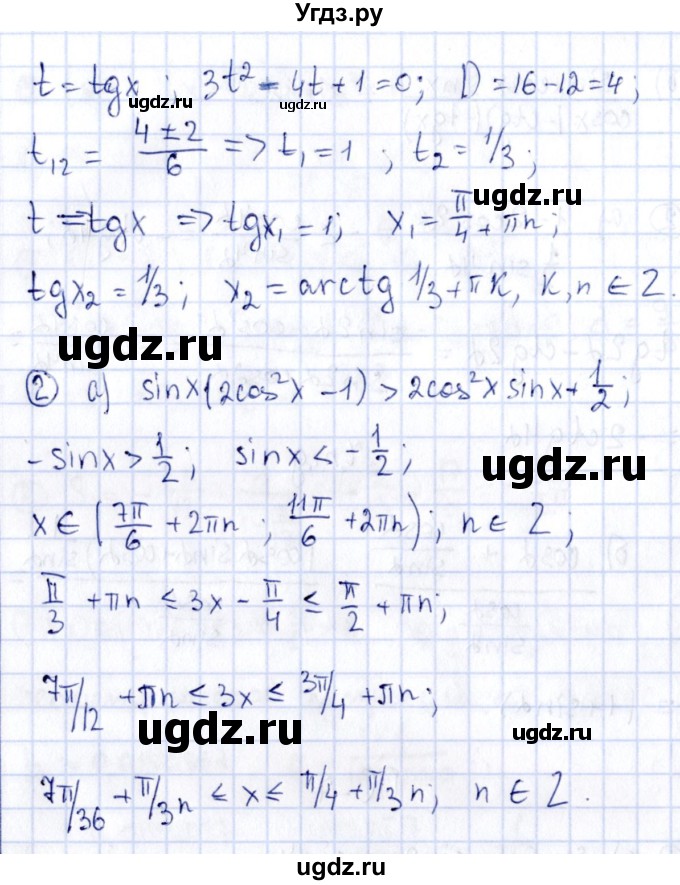 Угдз.ру
t = tgx ; 3t² - 4t + 1 = 0; D = 16 - 12 = 4;
ugdz.ru
ugdz.ru
t₁₂ = (4 ± 2)/6 => t₁ = 1 ; t₂ = 1/3;
ugdz.ru
t = tgx => tgx₁ = 1; x₁ = π/4 + πn;
tgx₂ = 1/3; x₂ = arctg 1/3 + πk, k, n ∈ Z.
ugdz.ru
② а) sinx(2cos²x - 1) > 2cos²x sinx + 1/2;
- sinx > 1/2; sinx < - 1/2;
ugdz.ru
x ∈ (7π/6 + 2πn ; 11π/6 + 2πn); n ∈ Z;
π/3 + πn ≤ 3x - π/4 ≤ π/2 + πn;
7π/12 + πn ≤ 3x ≤ 3π/4 + πn;
ugdz.ru
ugdz.ru
7π/36 + π/3 n ≤ x ≤ π/4 + π/3 n; n ∈ Z.
ugdz.ru